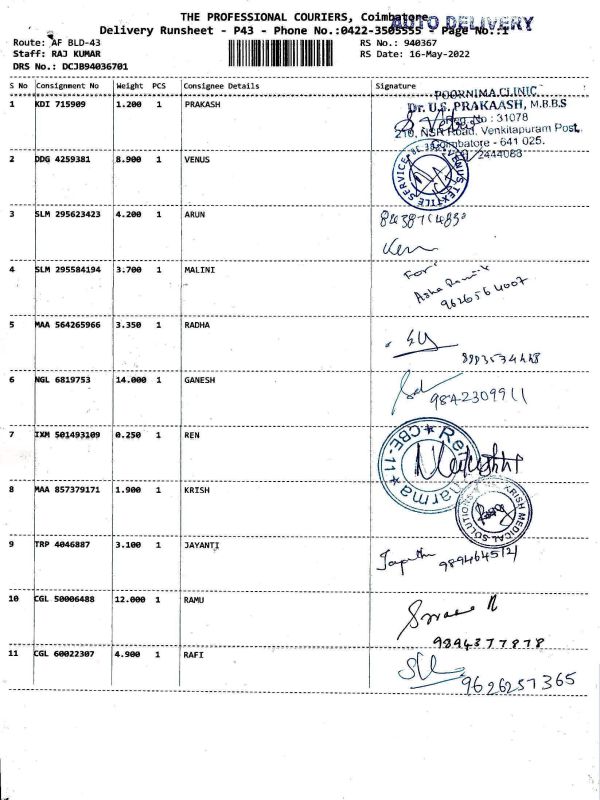 THE PROFESSIONAL COURIERS, Coimbatore
AUTO DELIVERY
Delivery Runsheet - P43 - Phone No.:0422-3505555 - Page No.:1
Route: AF BLD-43 RS No.: 940367
Staff: RAJ KUMAR RS Date: 16-May-2022
DRS No.: DCJB94036701
S No Consignment No Weight PCS Consignee Details Signature
POORNIMA CLINIC
Dr. U.S. PRAKAASH, M.B.B.S
1 KDI 715909 1.200 1 PRAKASH
Reg. No : 31078
210, NSR Road, Venkitapuram Post,
Coimbatore - 641 025.
2444083
2 DDG 4259381 8.900 1 VENUS
VENUS TEXTILE SERVICE
3 SLM 295623423 4.200 1 ARUN
4 SLM 295584194 3.700 1 MALINI
For
Asha
9626564007
5 MAA 564265966 3.350 1 RADHA
6 NGL 6819753 14.000 1 GANESH
9842309911
7 IXM 501493109 0.250 1 REN
CBE-11
8 MAA 857379171 1.900 1 KRISH
KRISH MEDICAL SOLUTIONS
9 TRP 4046887 3.100 1 JAYANTI
9894645121
10 CGL 50006488 12.000 1 RAMU
9894377878
11 CGL 60022307 4.900 1 RAFI
9626257365